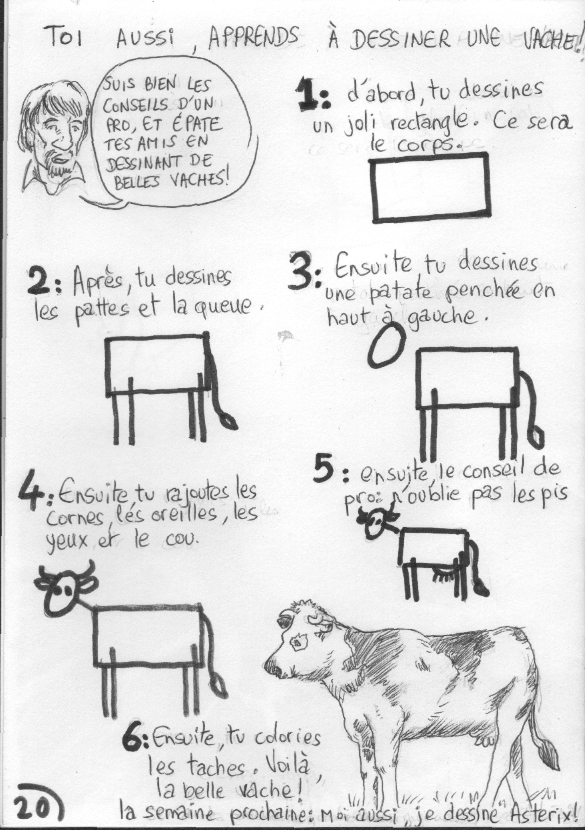 TOI AUSSI, APPRENDS À DESSINER UNE VACHE!
SUIS BIEN LES
CONSEILS D'UN
PRO, ET ÉPATE
TES AMIS EN
DESSINANT DE
BELLES VACHES!
1: d'abord, tu dessines
un joli rectangle. Ce sera
le corps.
2: Après, tu dessines
les pattes et la queue.
3: Ensuite, tu dessines
une patate penchée en
haut à gauche.
4: Ensuite tu rajoutes les
cornes, les oreilles, les
yeux et le cou.
5: ensuite, le conseil de
pro: n'oublie pas les pis
6: Ensuite, tu colories
les taches. Voilà,
la belle vache!
20
la semaine prochaine: Moi aussi, je dessine Astérix!